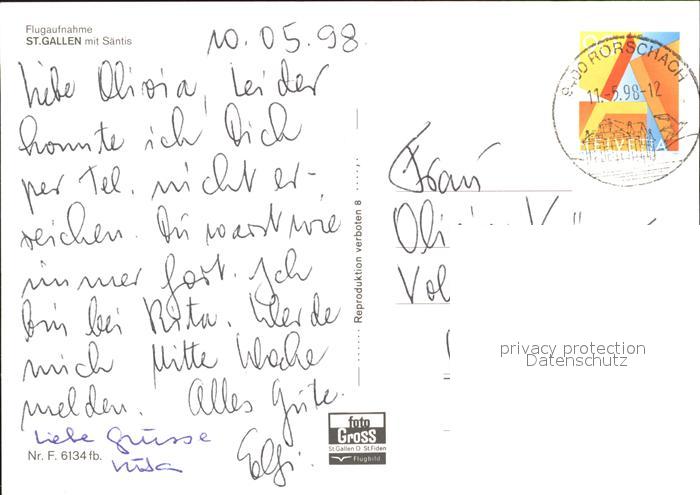 Flugaufnahme
ST.GALLEN mit Säntis
10.05.98.
Liebe Olivia, Leider
konnte ich Dich
per Tel. nicht er-
reichen. Du warst wie
immer fort. Ich
bin bei Rita. Werde
mich Mitte Woche
melden. Alles Gute.
Liebe Grüsse
Rita
Nr. F. 6134 fb.
Reproduktion verboten 8
foto
Gross
St.Gallen O St.Fiden
Flugbild
9400 RORSCHACH
11.-5.98-12
HELVETIA
Frau
Oli
Vol
privacy protection
Datenschutz